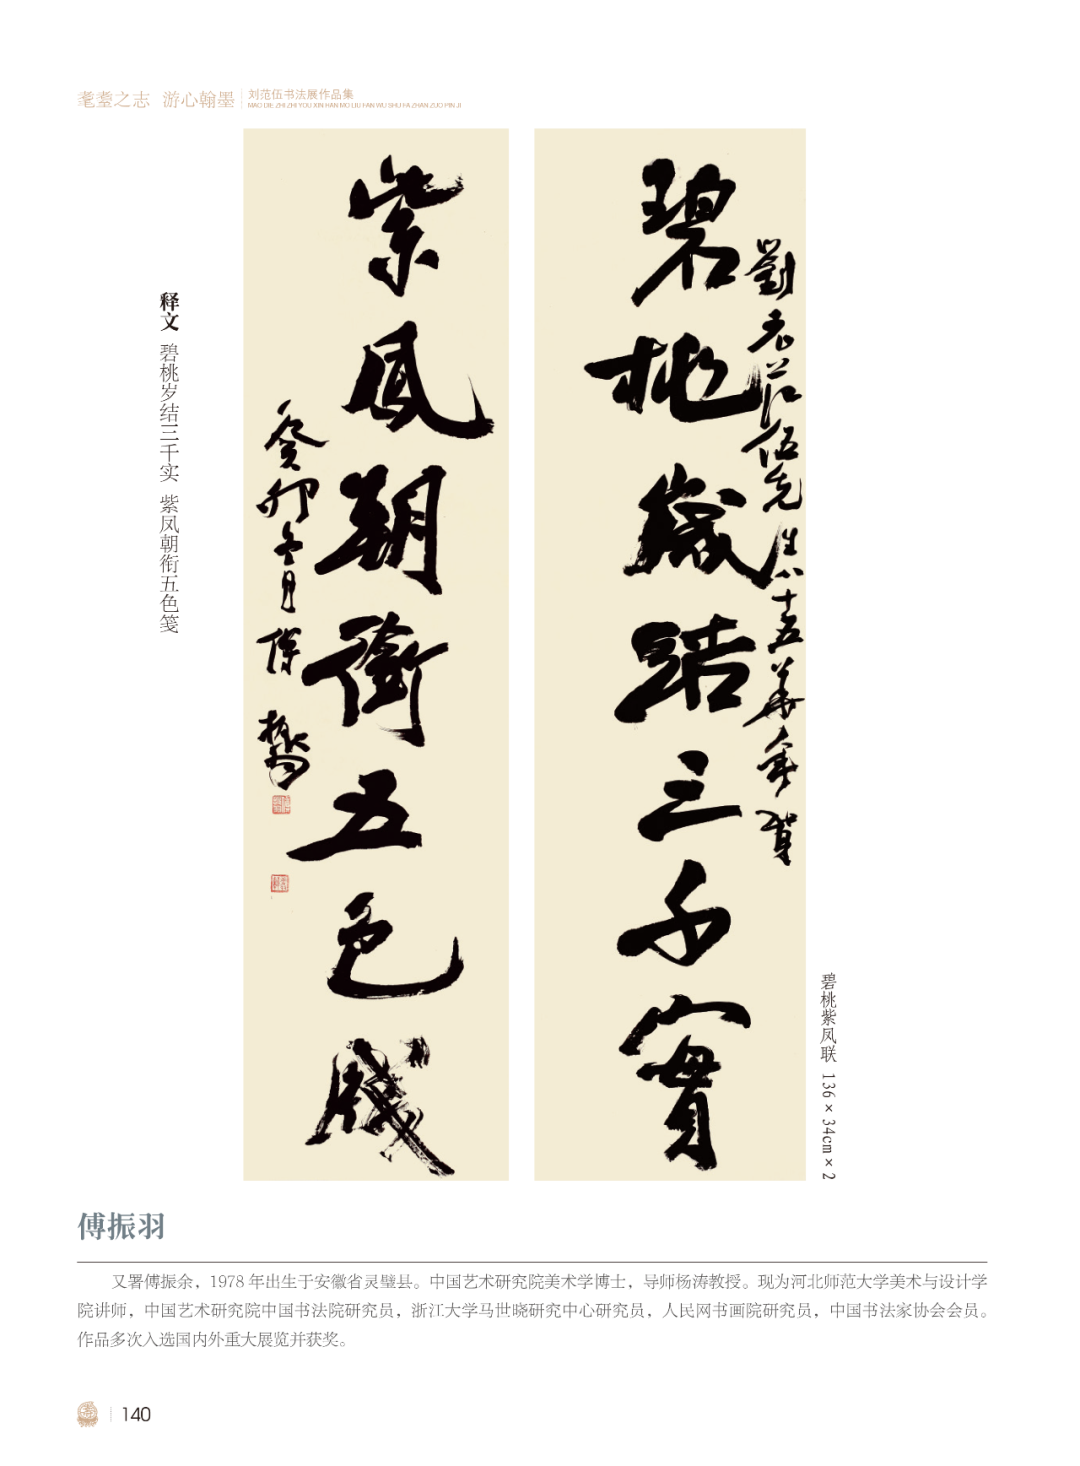 耄耋之志 游心翰墨
刘范伍书法展作品集
MAO DIE ZHI ZHI YOU XIN HAN MO LIU FAN WU SHU FA ZHAN ZUO PIN JI
碧桃歲結三千實
劉老范伍先生八十五華年賀
紫鳳朝銜五色牋
癸卯冬月傅振羽
释文 碧桃岁结三千实 紫凤朝衔五色笺
碧桃紫凤联 136×34cm×2
傅振羽
又署傅振余，1978 年出生于安徽省灵璧县。中国艺术研究院美术学博士，导师杨涛教授。现为河北师范大学美术与设计学
院讲师，中国艺术研究院中国书法院研究员，浙江大学马世晓研究中心研究员，人民网书画院研究员，中国书法家协会会员。
作品多次入选国内外重大展览并获奖。
140